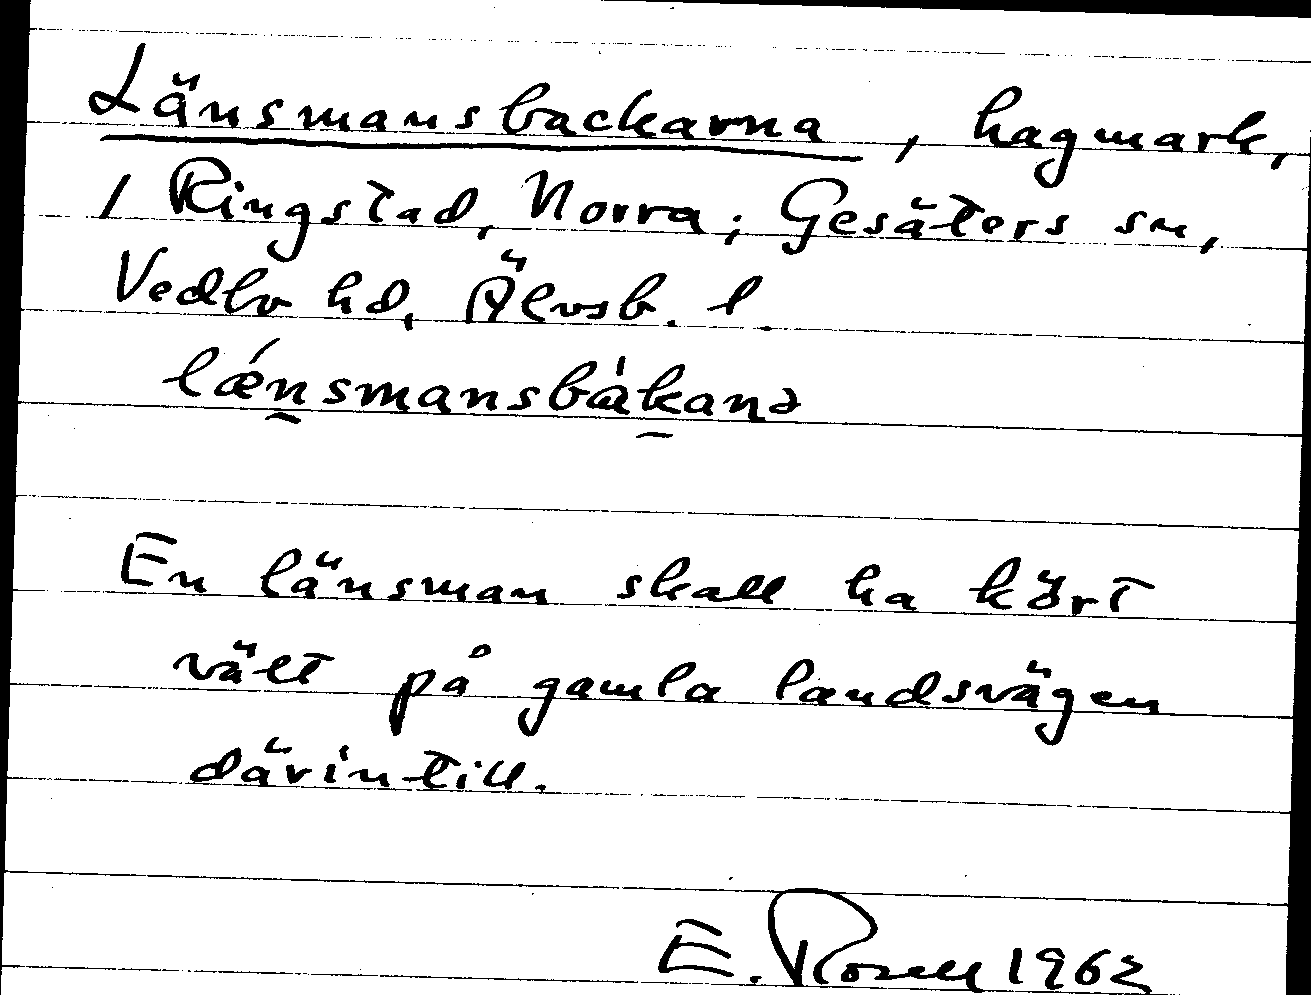 Länsmansbackarna, hagmark,
1 Ringstad, Norra; Gesäters sn,
Vedbo hd, Älvsb. l.
lǽn̰smansbàk̰anə
En länsman skall ha kört
vält på gamla landsvägen
därintill.
E. Rosell 1962